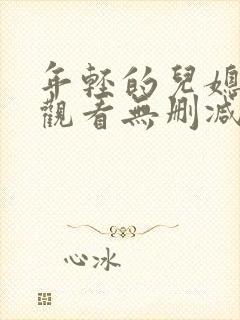 年輕的兒媳
觀看無刪減
心冰